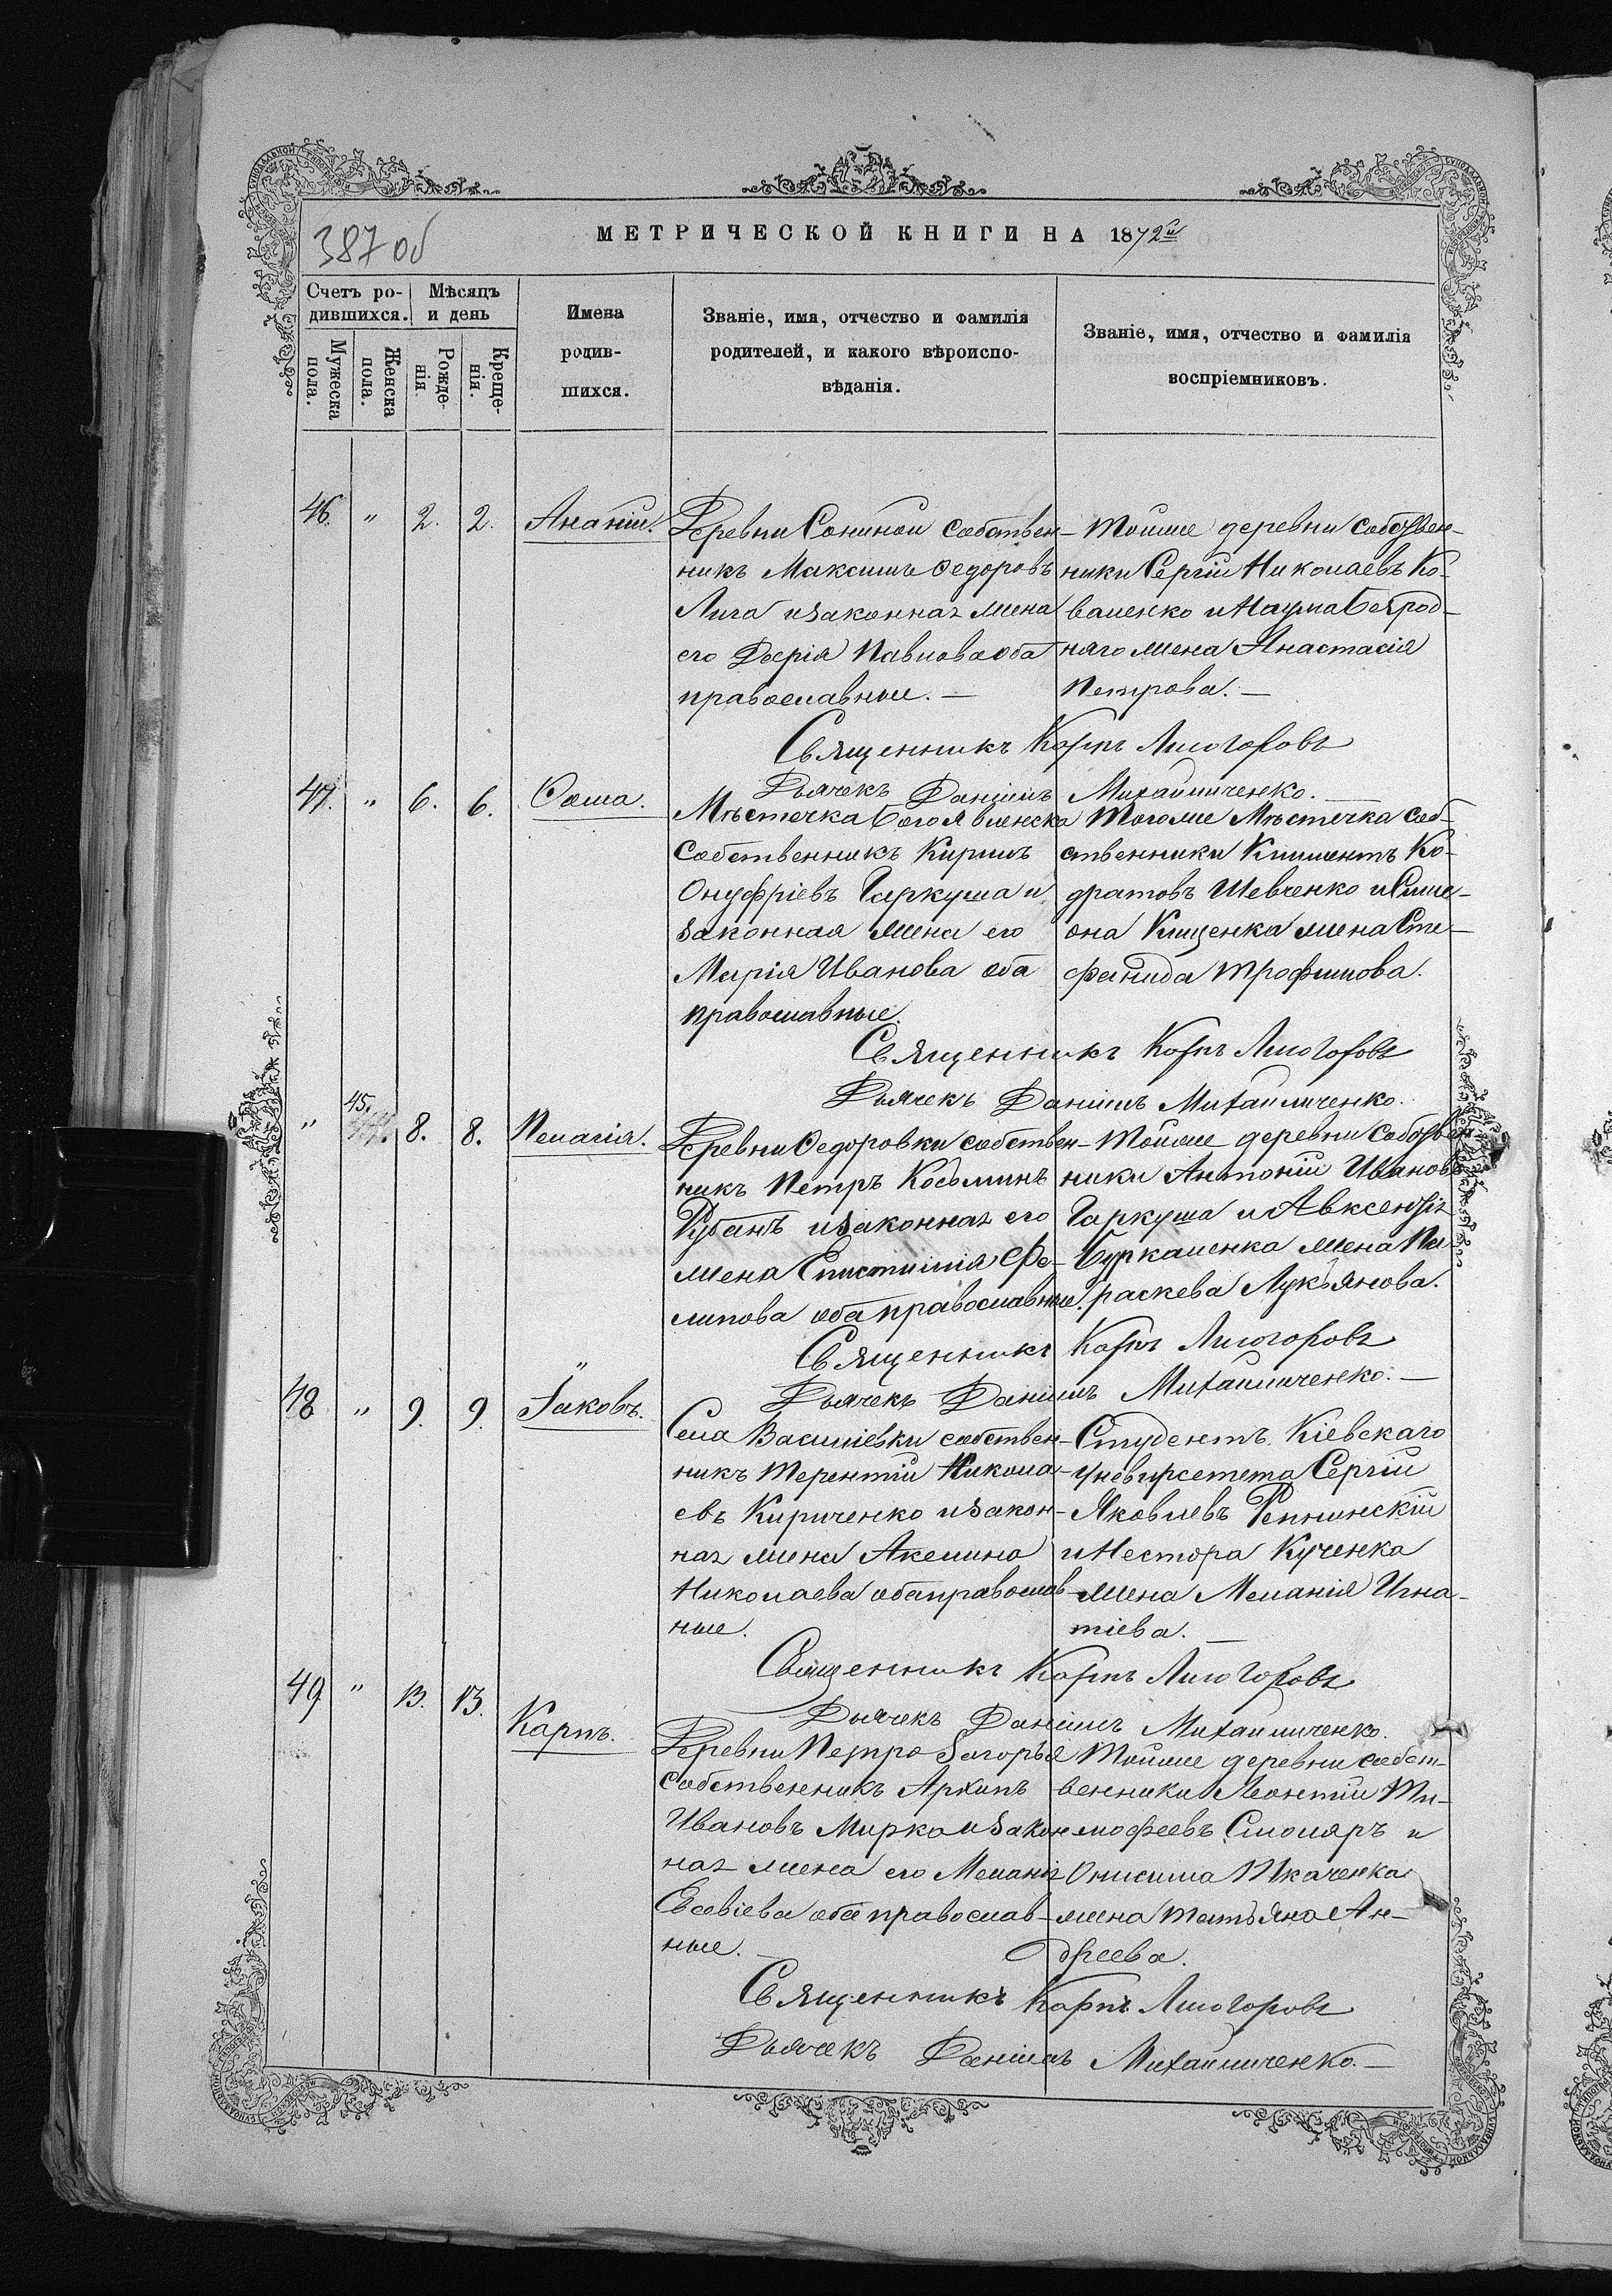 387 об
МЕТРИЧЕСКОЙ КНИГИ НА 1872й
Счетъ ро-
дившихся.
Мѣсяцъ
и день
Имена
родив-
шихся.
Званіе, имя, отчество и фамилія
родителей, и какого вѣроиспо-
вѣданія.
Званіе, имя, отчество и фамилія
воспріемниковъ.
Мужеска
пола.
Женска
пола.
Рожде-
нія.
Креще-
нія.
46. " 2. 2. Ананій.
Деревни Сониной собствен-
никъ Максимъ Ѳедоровъ
Лига и законная жена
его Дарія Павлова оба
православные. —
Тойже деревни собствен-
ники Сергій Николаевъ Ко-
валенко и Наума Безрод-
наго жена Анастасія
Петрова. —
Священникъ Карпъ Лиогоровъ
Дьячекъ Даніилъ Михайличенко.
47. " 6. 6. Ѳома.
Мѣстечка Богоявленска
собственникъ Кирилъ
Онуфріевъ Гаркуша и
законная жена его
Марія Иванова оба
православные.
Тогоже Мѣстечка соб-
ственники Климентъ Ко-
дратовъ Шевченко и Симе-
она Клищенка жена Сте-
фанида Трофимова.
Священникъ Карпъ Лиогоровъ
Дьячекъ Даніилъ Михайличенко.
" 45. 8. 8. Пелагія.
Деревни Ѳедоровки собствен-
никъ Петръ Козьминъ
Рубанъ и законная его
жена Епистимія Фе-
липова оба православные.
Тойже деревни собствен-
ники Антоній Ивановъ
Гаркуша и Авксентія
Буркаленка жена Па-
раскева Лукьянова.
Священникъ Карпъ Лиогоровъ
Дьячекъ Даніилъ Михайличенко. —
48 " 9. 9. Іаковъ.
Села Василіевки собствен-
никъ Терентій Никола-
евъ Кириченко и закон-
ная жена Акелина
Николаева оба православ-
ные.
Студентъ Кіевскаго
унѣвирсетета Сергій
Яковлевъ Репнинскій
и Нестора Кученка
жена Меланія Игна-
тіева. —
Священникъ Карпъ Лиогоровъ
Дьячекъ Даніилъ Михайличенко.
49 " 13. 13. Карпъ.
Деревни Петро Загорья
собственникъ Архипъ
Ивановъ Мирко и закон-
ная жена его Меланія
Евсевіева оба православ-
ные. —
Тойже деревни собст-
венники Леонтій Ти-
мофеевъ Смоляръ и
Онисима Ткаченка
жена Татьяна Ан-
дреева.
Священникъ Карпъ Лиогоровъ
Дьячекъ Даніилъ Михайличенко. —